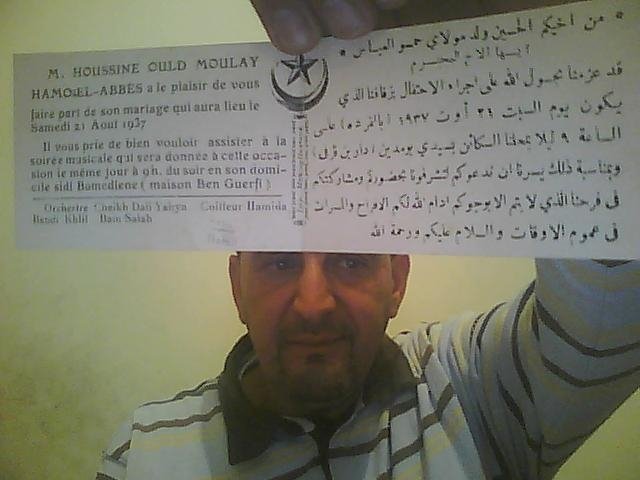 M. HOUSSINE OULD MOULAY
HAMO EL-ABBES a le plaisir de vous
faire part de son mariage qui aura lieu le
Samedi 21 Aout 1937
Il vous prie de bien vouloir assister à la
soirée musicale qui sera donnée à cette occa-
sion le même jour à 9h. du soir en son domi-
cile sidi Bamediene ( maison Ben Guerfi )
Orchestre Cheikh Dali Yahya Coiffeur Hamida
Bendi Khlil Bain Salah
من اخيكم الحسين ولد مولاي حمو العباس
ايها الاخ المحترم
قد عزمنا بحول الله على اجراء الاحتفال بزفافنا الذي
يكون يوم السبت ٢١ أوت ١٩٣٧ (بالفرده) على
الساعة ٩ ليلا بمحلنا السكائن بسيدي بومدين (دار بن قرفي)
وبمناسبة ذلك يسرنا ان ندعوكم لتشرفونا بحضوركم ومشاركتكم
في فرحنا الذي لا يتم الا بوجودكم ادام الله لكم الافراح والمسرات
في عموم الاوقات والسلام عليكم ورحمة الله